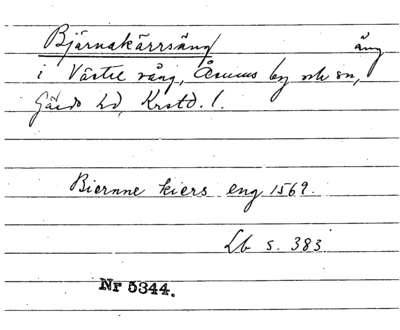 Bjärnakärrsäng äng
i Västre vång, Åsums by och sn,
Gärds hd, Krstd. l.
Biernne kiers eng 1569.
Lb s. 383
Nr 5344.